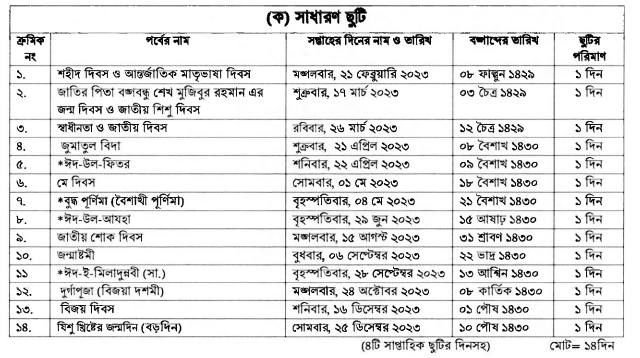 (ক) সাধারণ ছুটি
ক্রমিক নং পর্বের নাম সপ্তাহের দিনের নাম ও তারিখ বঙ্গাব্দের তারিখ ছুটির পরিমাণ
১. শহীদ দিবস ও আন্তর্জাতিক মাতৃভাষা দিবস মঙ্গলবার, ২১ ফেব্রুয়ারি ২০২৩ ০৮ ফাল্গুন ১৪২৯ ১ দিন
২. জাতির পিতা বঙ্গবন্ধু শেখ মুজিবুর রহমান এর শুক্রবার, ১৭ মার্চ ২০২৩ ০৩ চৈত্র ১৪২৯ ১ দিন
জন্ম দিবস ও জাতীয় শিশু দিবস
৩. স্বাধীনতা ও জাতীয় দিবস রবিবার, ২৬ মার্চ ২০২৩ ১২ চৈত্র ১৪২৯ ১ দিন
৪. জুমাতুল বিদা শুক্রবার, ২১ এপ্রিল ২০২৩ ০৮ বৈশাখ ১৪৩০ ১ দিন
৫. *ঈদ-উল-ফিতর শনিবার, ২২ এপ্রিল ২০২৩ ০৯ বৈশাখ ১৪৩০ ১ দিন
৬. মে দিবস সোমবার, ০১ মে ২০২৩ ১৮ বৈশাখ ১৪৩০ ১ দিন
৭. *বুদ্ধ পূর্ণিমা (বৈশাখী পূর্ণিমা) বৃহস্পতিবার, ০৪ মে ২০২৩ ২১ বৈশাখ ১৪৩০ ১ দিন
৮. *ঈদ-উল-আযহা বৃহস্পতিবার, ২৯ জুন ২০২৩ ১৫ আষাঢ় ১৪৩০ ১ দিন
৯. জাতীয় শোক দিবস মঙ্গলবার, ১৫ আগস্ট ২০২৩ ৩১ শ্রাবণ ১৪৩০ ১ দিন
১০. জন্মাষ্টমী বুধবার, ০৬ সেপ্টেম্বর ২০২৩ ২২ ভাদ্র ১৪৩০ ১ দিন
১১ *ঈদ-ই-মিলাদুন্নবী (সা.) বৃহস্পতিবার, ২৮ সেপ্টেম্বর ২০২৩ ১৩ আশ্বিন ১৪৩০ ১ দিন
১২. দুর্গাপূজা (বিজয়া দশমী) মঙ্গলবার, ২৪ অক্টোবর ২০২৩ ০৮ কার্তিক ১৪৩০ ১ দিন
১৩. বিজয় দিবস শনিবার, ১৬ ডিসেম্বর ২০২৩ ০১ পৌষ ১৪৩০ ১ দিন
১৪. যিশু খ্রিষ্টের জন্মদিন (বড়দিন) সোমবার, ২৫ ডিসেম্বর ২০২৩ ১০ পৌষ ১৪৩০ ১ দিন
(৪টি সাপ্তাহিক ছুটির দিনসহ) মোট= ১৪দিন